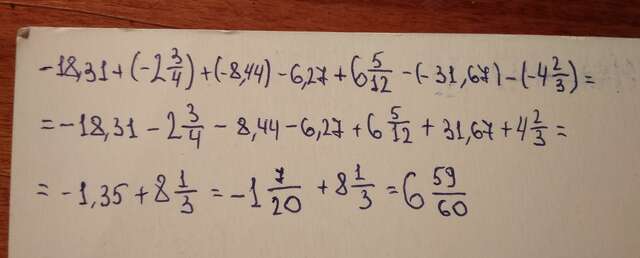 -18,31+(-2 3/4)+(-8,44)-6,27+6 5/12-(-31,67)-(-4 2/3)=
=-18,31-2 3/4-8,44-6,27+6 5/12+31,67+4 2/3=
=-1,35+8 1/3=-1 7/20+8 1/3=6 59/60